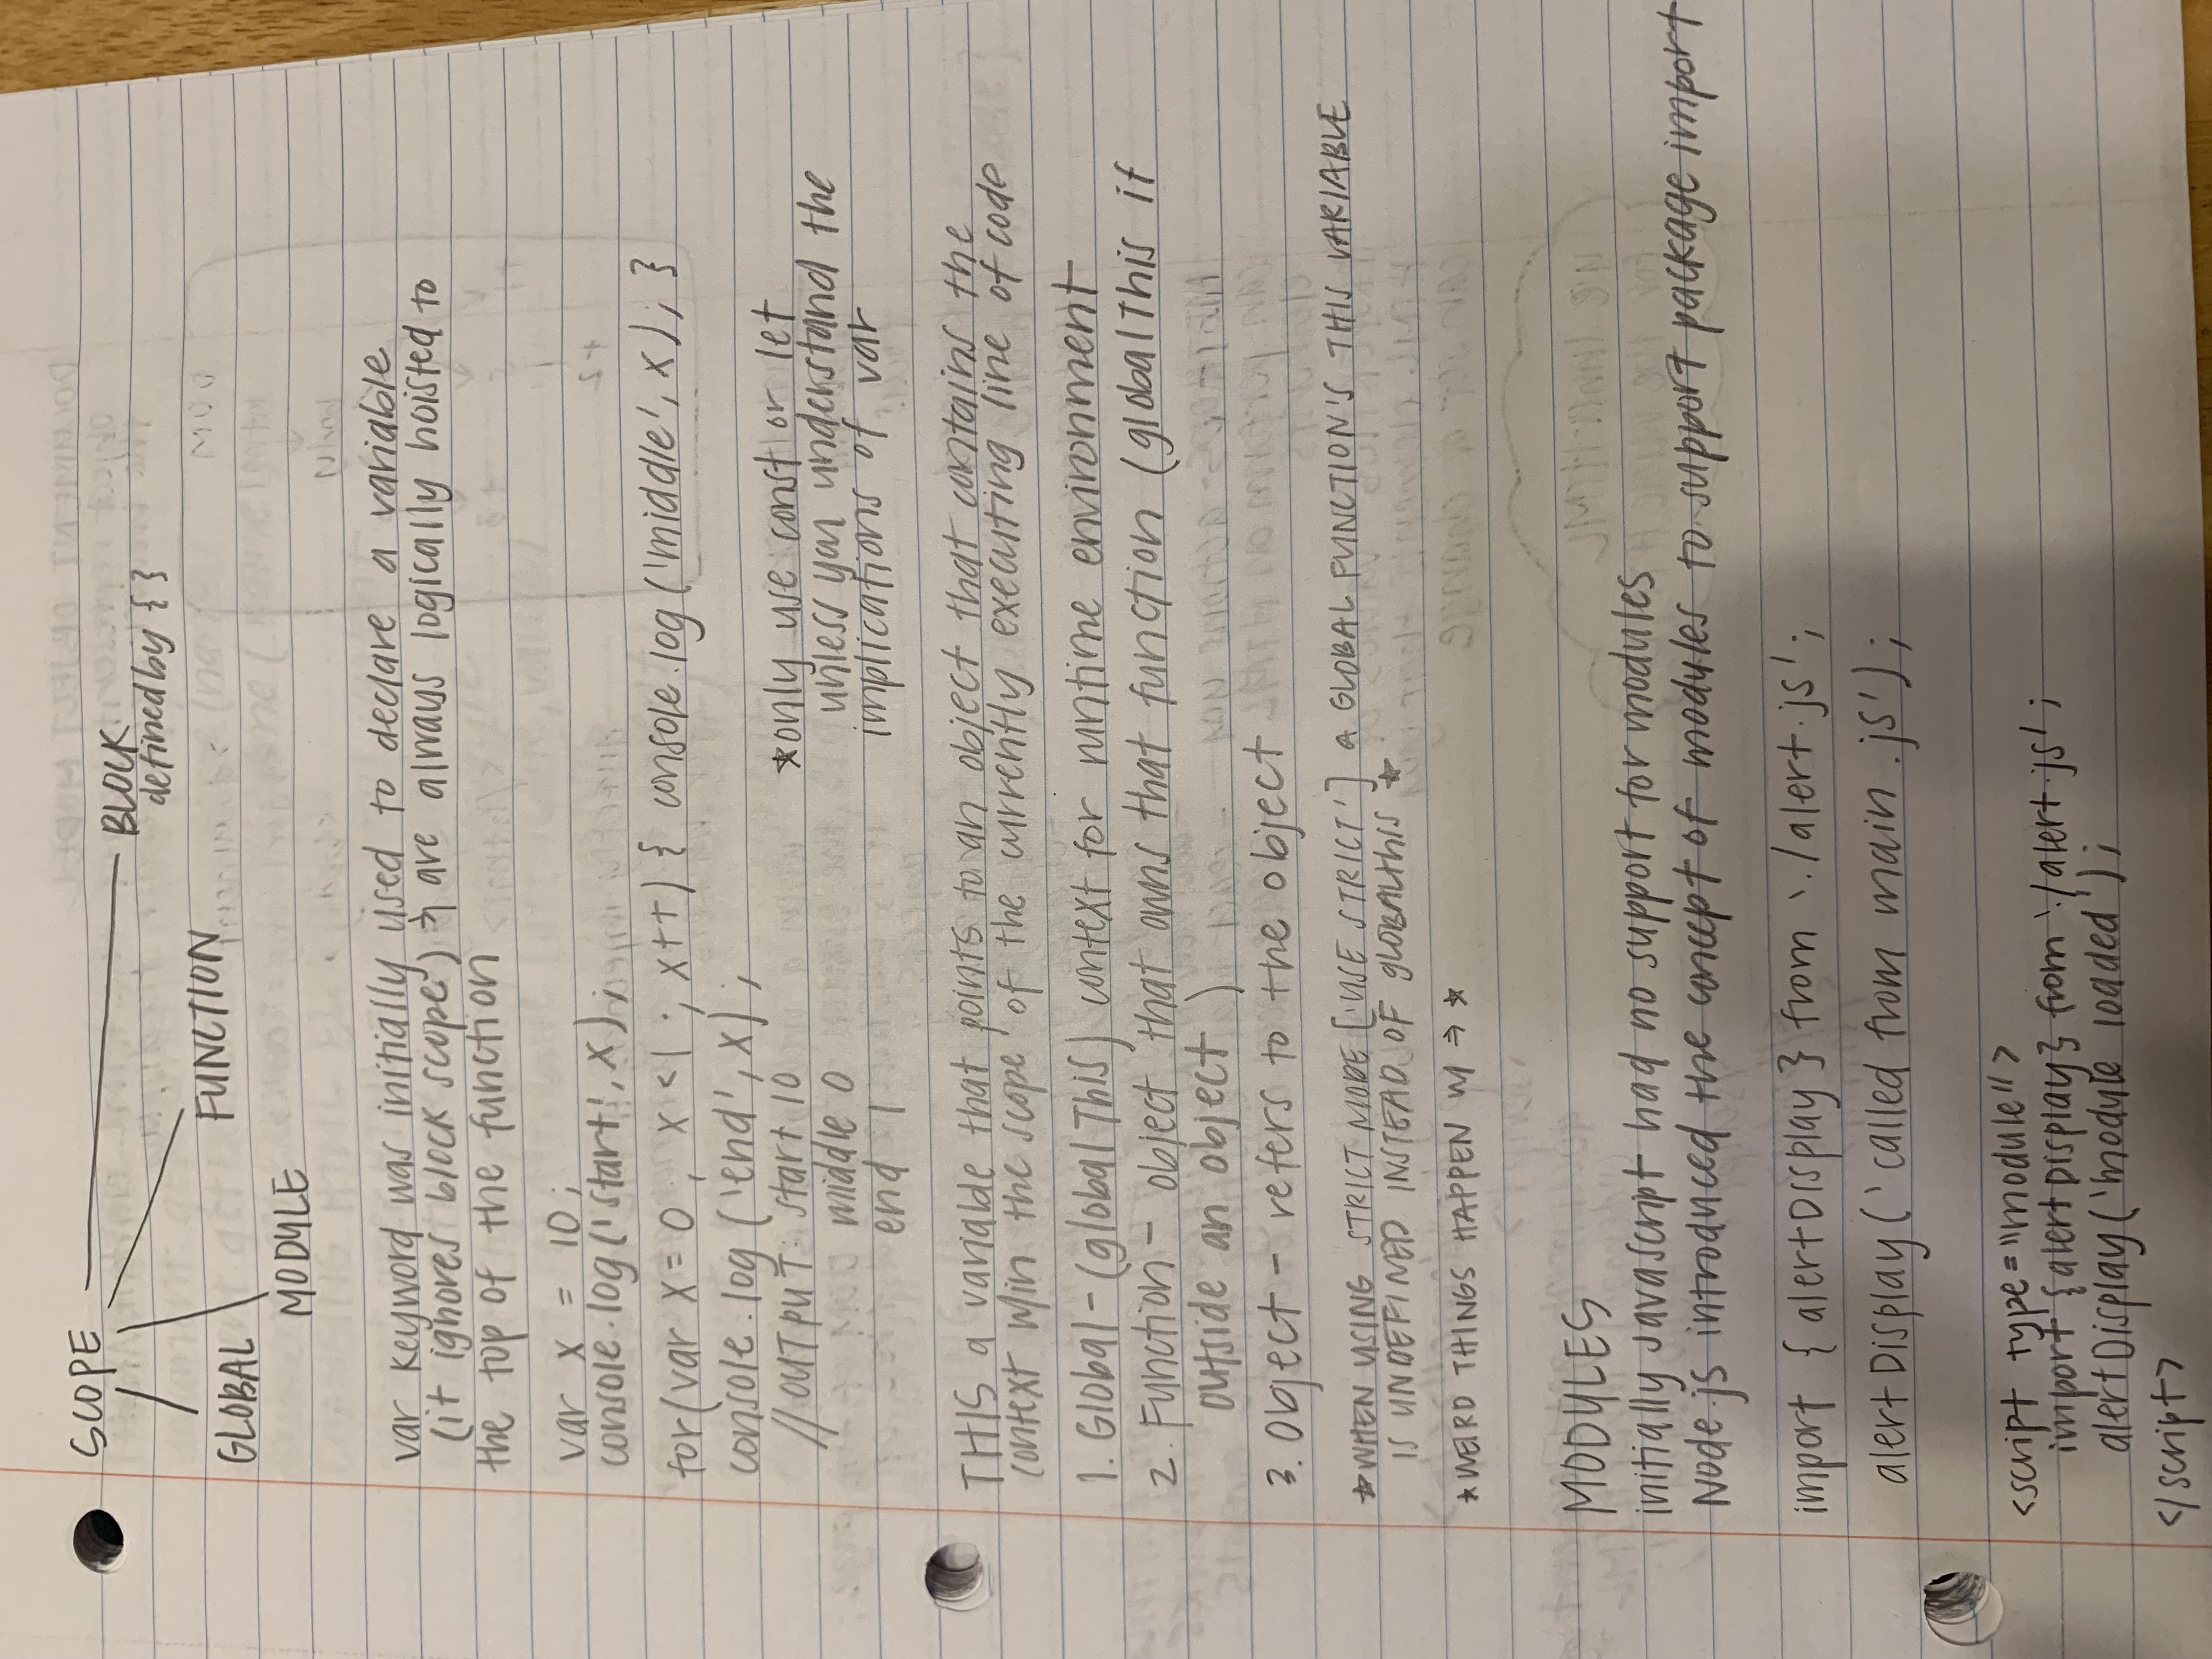 SCOPE
BLOCK
defined by { }
FUNCTION
GLOBAL
MODULE
var keyword was initially used to declare a variable
(it ignores block scope) & are always logically hoisted to
the top of the function
var x = 10;
console.log('start', x);
for(var x = 0 ; x < 1 ; x++) { console.log('middle', x); }
console.log('end', x);
//OUTPUT: start 10
middle 0
end 1
*only use const or let
unless you understand the
implications of var
THIS a variable that points to an object that contains the
context w/in the scope of the currently executing line of code
1. Global - (globalThis) context for runtime environment
2. Function - object that owns that function (globalThis if
outside an object)
3. Object - refers to the object
*WHEN USING STRICT MODE ['USE STRICT'] A GLOBAL FUNCTION'S THIS VARIABLE
IS UNDEFINED INSTEAD OF GLOBALTHIS *
*WEIRD THINGS HAPPEN W/ ⇒ *
MODULES
initially Javascript had no support for modules
Node.js introduced the concept of modules to support package import
import { alertDisplay } from './alert.js';
alertDisplay('called from main.js');
<script type="module">
import {alertDisplay} from './alert.js';
alertDisplay('module loaded');
</script>